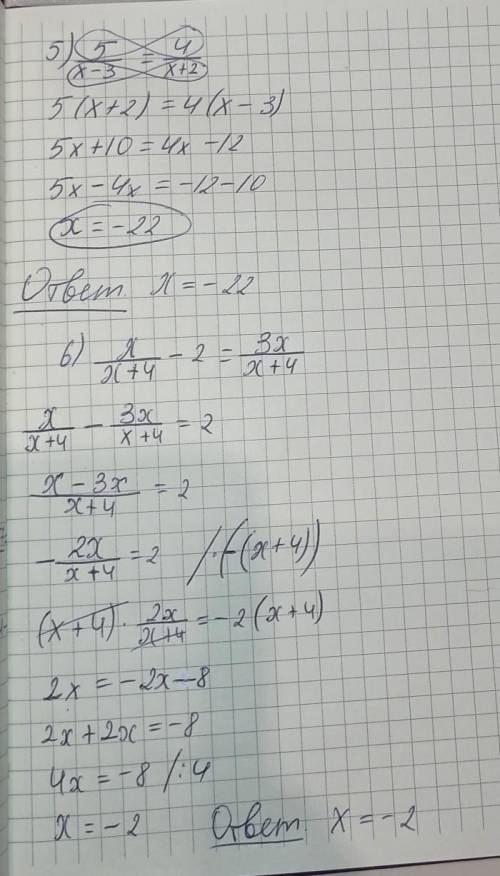 5) 5/(x-3) = 4/(x+2)
5(x+2) = 4(x-3)
5x+10 = 4x-12
5x-4x = -12-10
x = -22
Ответ x = -22
6) x/(x+4) - 2 = 3x/(x+4)
x/(x+4) - 3x/(x+4) = 2
(x-3x)/(x+4) = 2
-2x/(x+4) = 2 /·(-(x+4))
(x+4)·2x/(x+4) = -2(x+4)
2x = -2x-8
2x+2x = -8
4x = -8 /:4
x = -2 Ответ x = -2